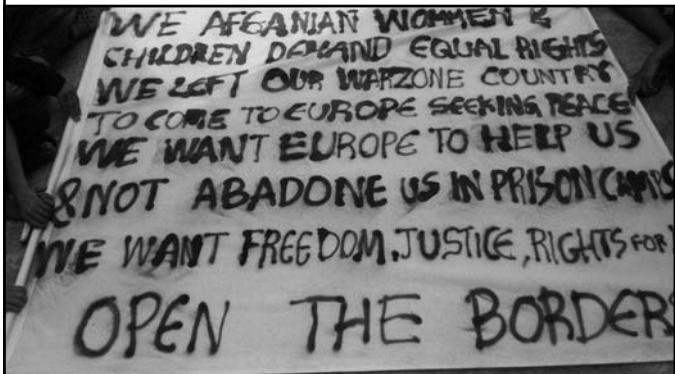 WE AFGANIAN WOMMEN &
CHILDREN DEMAND EQUAL RIGHTS
WE LEFT OUR WARZONE COUNTRY
TO COME TO EUROPE SEEKING PEACE
WE WANT EUROPE TO HELP US
& NOT ABADONE US IN PRISON CAMPS
WE WANT FREEDOM, JUSTICE, RIGHTS FOR
OPEN THE BORDERS